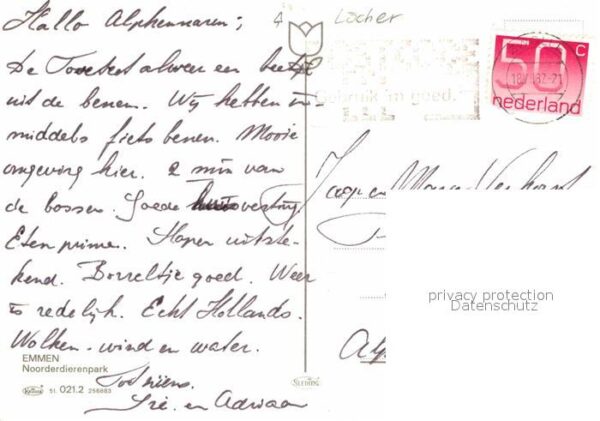 Hallo Alphennaren;
De Toverbest alweer een beetje
uit de benen. Wij hebben in-
middels fiets benen. Mooie
omgeving hier. 2 min van
de bossen. Goede vesting
Eten prima. Slapen uitste-
kend. Borreltje goed. Weer
is redelijk. Echt Hollands.
Wolken - wind en water.
Tot ziens.
en Adriaan
EMMEN
Noorderdierenpark
51. 021.2 256883
4 Locher
Gebruik 'm goed.
50 c
nederland
Jaap en
privacy protection
Datenschutz
Alp